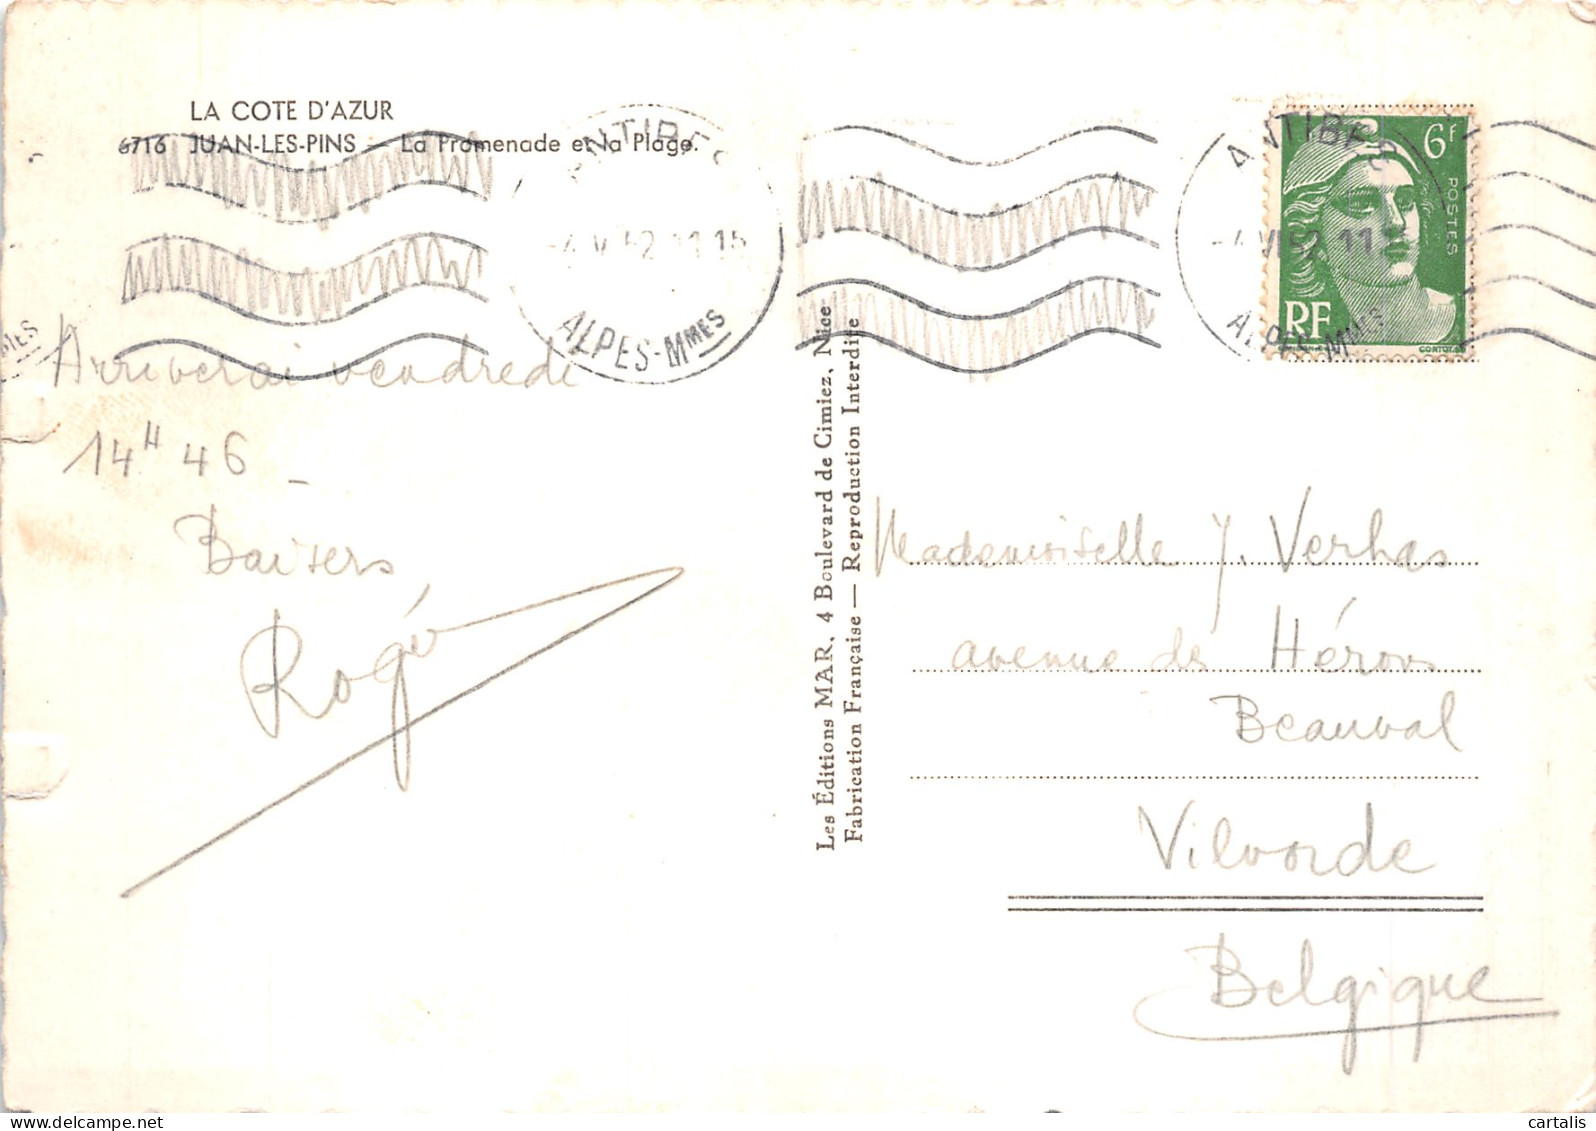 LA COTE D'AZUR
6716 JUAN-LES-PINS — La Promenade et la Plage.
ANTIBES
-4 VI 52 11 15
ALPES-MMES
ANTIBES
-4 VI 52 11
ALPES-MMES
6F
POSTES
RF
MES
Arriverai vendredi
14H 46 -
Baisers
Rogé
Les Éditions MAR, 4 Boulevard de Cimiez, Nice
Fabrication Française — Reproduction Interdite
Mademoiselle Y. Verhas
avenue des Héros
Beauval
Vilvorde
Belgique
cartalis